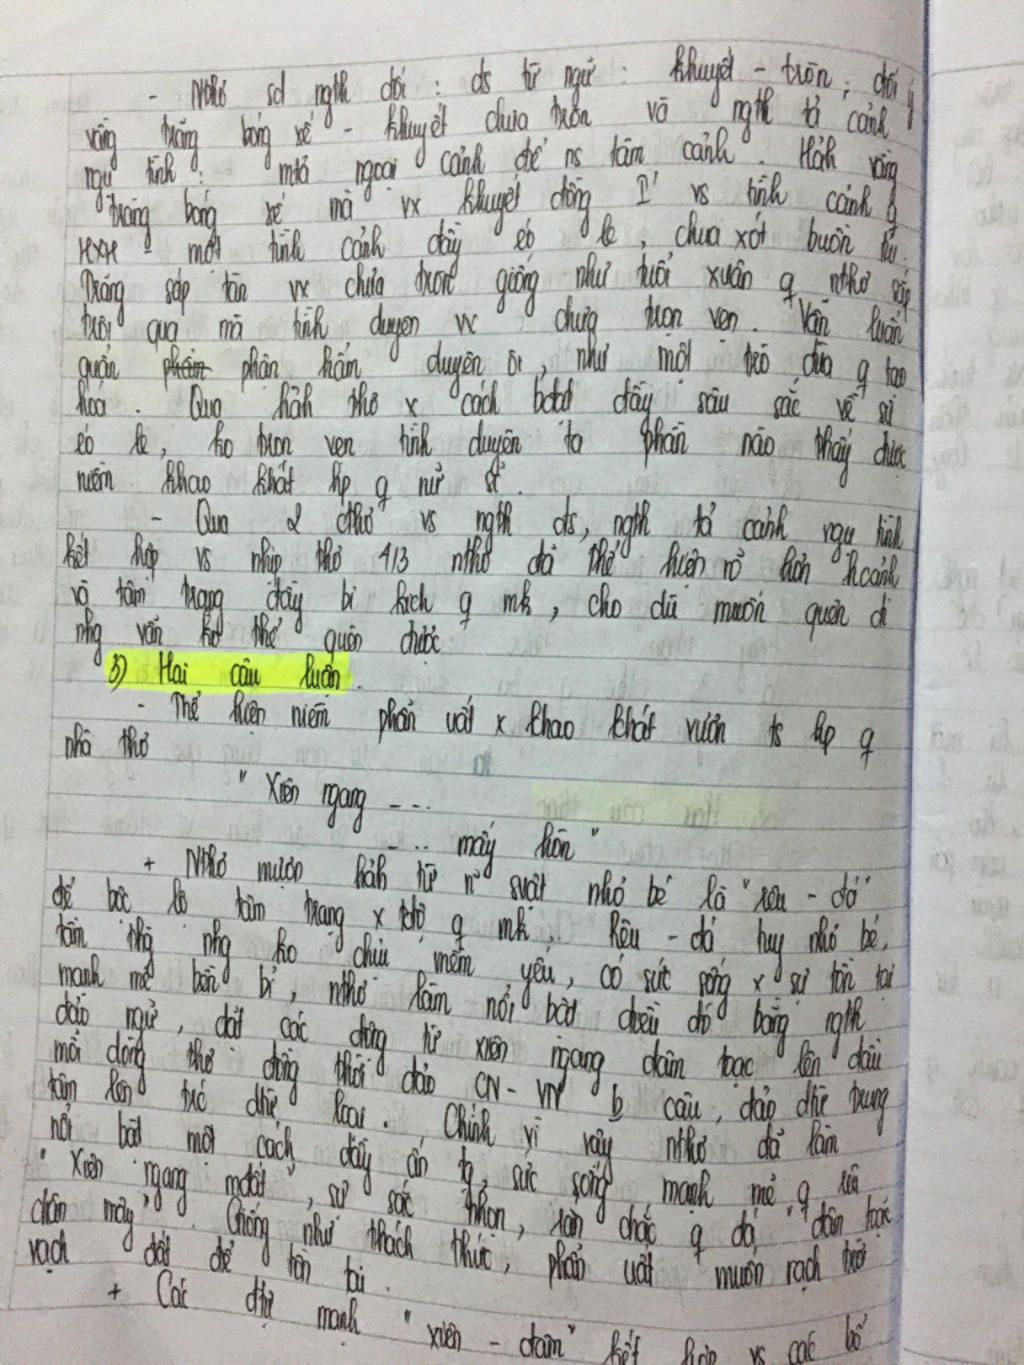 - Nthơ sd ngth đối : đs từ ngữ : khuyết - tròn ; đối ý
vầng trăng bóng xế - khuyết chưa tròn và ngth tả cảnh
ngụ tình : mtả ngoại cảnh để ns tâm cảnh . Hảnh vầng
trăng bóng xế mà vx khuyết đồng I' vs tình cảnh q
HXH - một tình cảnh đầy éo le , chua xót buồn tủi
Trăng sắp tàn vx chưa tròn giống như tuổi xuân q nthơ sắp
trôi qua mà tình duyên vx chưa trọn vẹn . Vẫn luẩn
quẩn phẩm phận hẩm duyên ôi , như một trò đùa q tạo
hóa . Qua hảnh thơ x cách bđạt đầy sâu sắc về sự
éo le , ko trọn vẹn tình duyên ta phần nào thấy được
niềm khao khát hp q nữ sĩ .
- Qua 2 cthơ vs ngth đs , ngth tả cảnh ngụ tình
kết hợp vs nhịp thơ 4/3 nthơ đã thể hiện rõ hơn hcảnh
và tâm trạng đầy bi kịch q mk , cho dù muốn quên đi
nhg vẫn ko thể quên được
3) Hai câu luận .
- Thể hiện niềm phẫn uất x khao khát vươn ts hp q
nhà thơ
" Xiên ngang - ...
- ... mấy hòn "
+ Nthơ mượn hảnh từ n~ svật nhỏ bé là " rêu - đá "
để bộc lộ tâm trạng x tđộ q mk . Rêu - đá tuy nhỏ bé,
tầm thg nhg ko chịu mềm yếu , có sức sống x sự tồn tại
mạnh mẽ bền bỉ , nthơ làm nổi bật điều đó bằng ngth
đảo ngữ , đặt các động từ xiên ngang đâm toạc lên đầu
mỗi dòng thơ đồng thời đảo CN - VN b câu , đảo dtừ trung
tâm lên trc dtừ loại . Chính vì vậy nthơ đã làm
nổi bật một cách đầy ấn tg sức sống mạnh mẽ q rêu
" Xiên ngang mđất " , sự sắc nhọn , rắn chắc q đá " đâm toạc
chân mây " . Giống như thách thức , phẫn uất muốn rạch trời
vạch đất để tồn tại .
+ Các đtừ mạnh " xiên - đâm " kết hợp vs các bổ